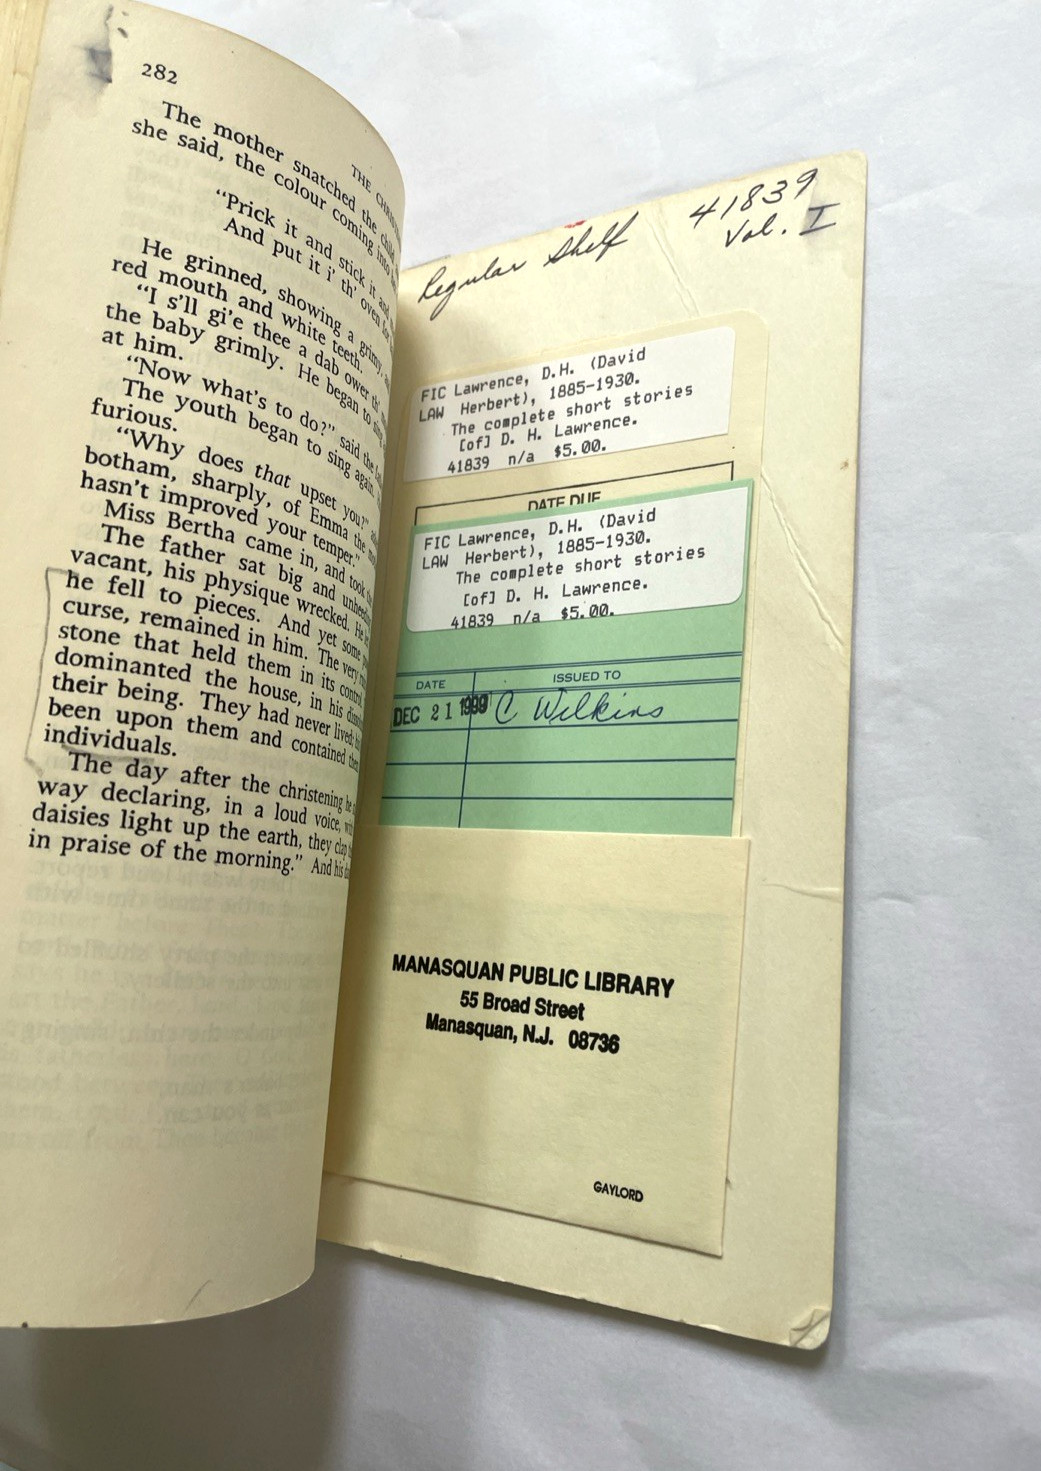 282
THE CHRIS
The mother snatched the child
she said, the colour coming into
"Prick it and stick it and
And put it i' th' oven for
He grinned, showing a grimy,
red mouth and white teeth.
"I s'll gi'e thee a dab ower th'
the baby grimly. He began to sing
at him.
"Now what's to do?" said the
The youth began to sing again.
furious.
"Why does that upset you?"
botham, sharply, of Emma the
hasn't improved your temper."
Miss Bertha came in, and took
The father sat big and
vacant, his physique wrecked. He
he fell to pieces. And yet some
curse, remained in him. The very
stone that held them in its control
dominanted the house, in his
their being. They had never lived;
been upon them and contained
individuals.
The day after the christening he
way declaring, in a loud voice,
daisies light up the earth, they clap
in praise of the morning." And his
Regular Shelf
41839
Vol. I
FIC Lawrence, D.H. (David
LAW Herbert), 1885-1930.
The complete short stories
[of] D. H. Lawrence.
41839 n/a $5.00.
DATE DUE
FIC Lawrence, D.H. (David
LAW Herbert), 1885-1930.
The complete short stories
[of] D. H. Lawrence.
41839 n/a $5.00.
DATE ISSUED TO
DEC 21 1999 C Wilkins
MANASQUAN PUBLIC LIBRARY
55 Broad Street
Manasquan, N.J. 08736
GAYLORD